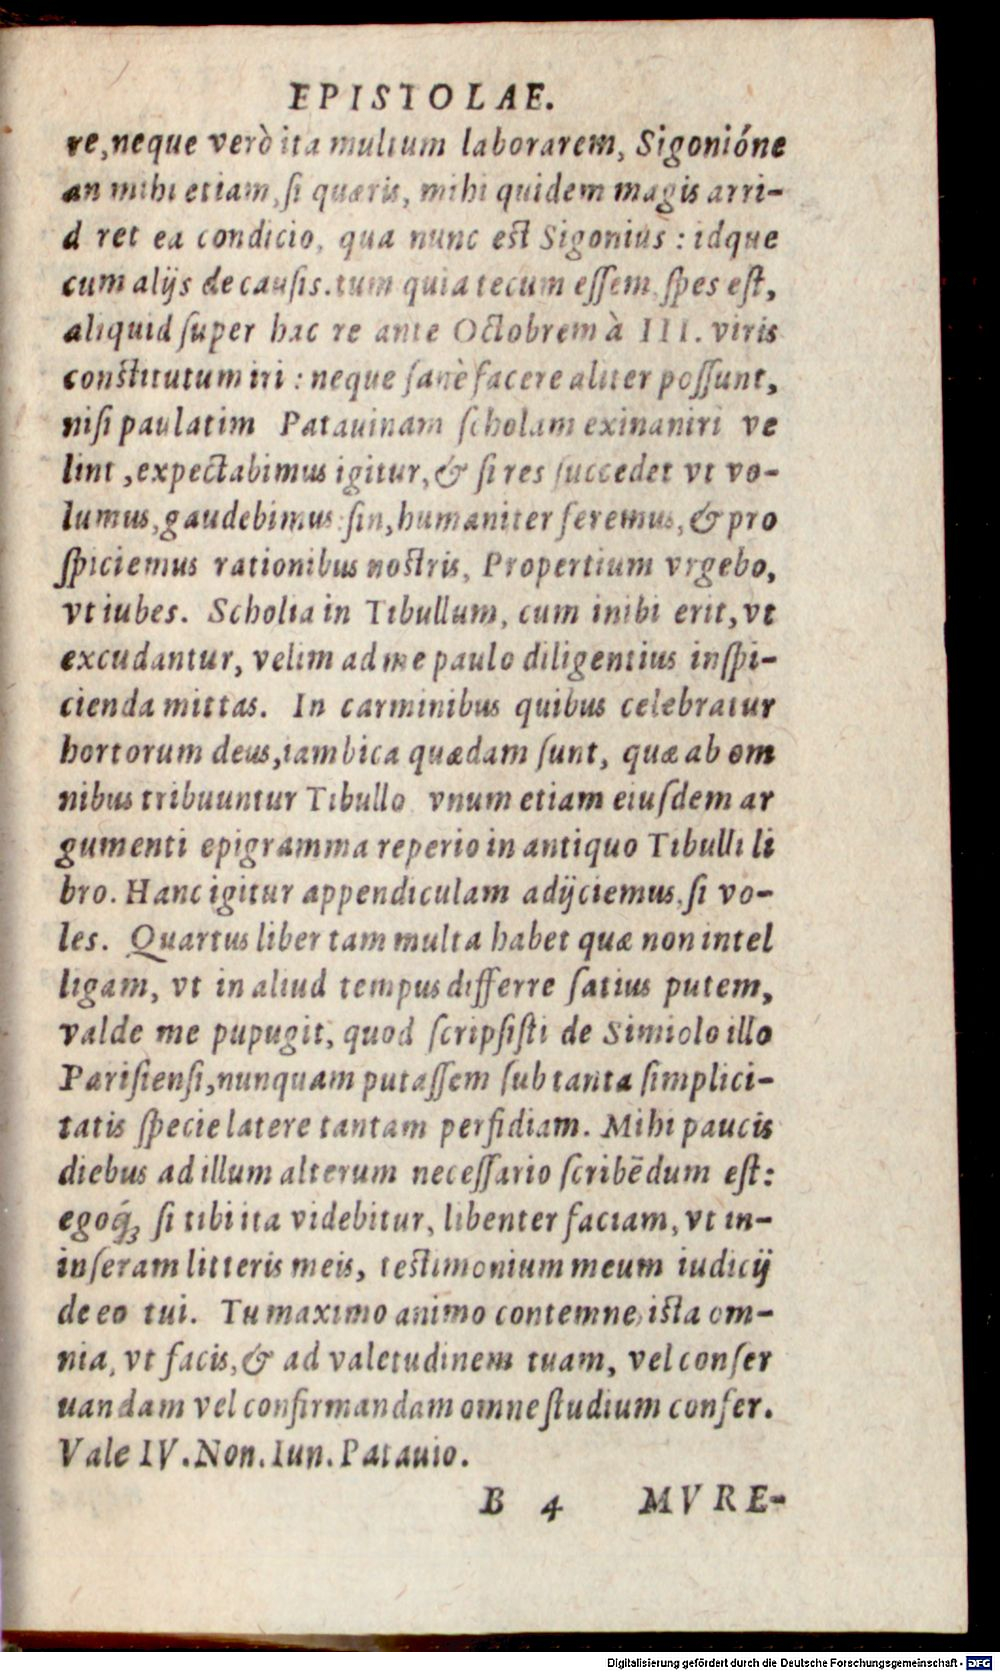 EPISTOLAE.
re, neque verò ita multum laborarem, Sigonióne
an mihi etiam, si quæris, mihi quidem magis arri-
d ret ea condicio, qua nunc est Sigonius : idque
cum alijs de causis. tum quia tecum essem. spes est,
aliquid super hac re ante Octobrem à III. viris
constitutum iri : neque sanè facere aliter possunt,
nisi paulatim Patauinam scholam exinaniri ve
lint, expectabimus igitur, & si res succedet vt vo-
lumus, gaudebimus: sin, humaniter feremus, & pro
spiciemus rationibus nostris, Propertium vrgebo,
vt iubes. Scholia in Tibullum, cum inibi erit, vt
excudantur, velim ad me paulo diligentius inspi-
cienda mittas. In carminibus quibus celebratur
hortorum deus, iambica quædam sunt, quæ ab om
nibus tribuuntur Tibullo vnum etiam eiusdem ar
gumenti epigramma reperio in antiquo Tibulli li
bro. Hanc igitur appendiculam adijciemus, si vo-
les. Quartus liber tam multa habet quæ non intel
ligam, vt in aliud tempus differre satius putem,
valde me pupugit, quod scripsisti de Simiolo illo
Parisiensi, nunquam putassem sub tanta simplici-
tatis specie latere tantam perfidiam. Mihi paucis
diebus ad illum alterum necessario scribẽdum est:
egoq́; si tibi ita videbitur, libenter faciam, vt in-
inseram litteris meis, testimonium meum iudicij
de eo tui. Tu maximo animo contemne, ista om-
nia, vt facis, & ad valetudinem tuam, vel conser
uandam vel confirmandam omne studium confer.
Vale IV. Non. Iun. Patauio.
B 4 MVRE-
Digitalisierung gefördert durch die Deutsche Forschungsgemeinschaft - DFG